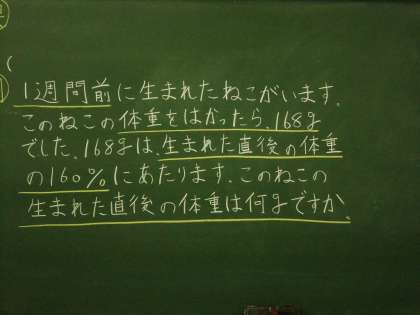 1週間前に生まれたねこがいます。
このねこの体重をはかったら、168g
でした。168gは、生まれた直後の体重
の160%にあたります。このねこの
生まれた直後の体重は何gですか。